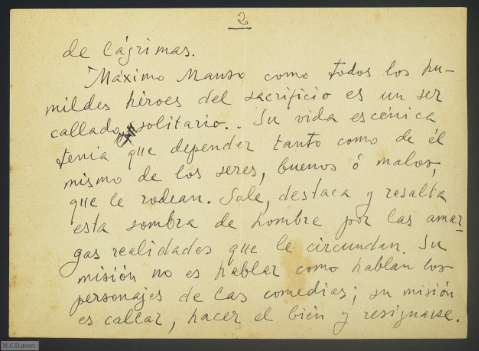 2
de lágrimas.
Máximo Manso como todos los hu-
mildes héroes del sacrificio es un ser
callado, solitario.. Su vida escénica
tenía que depender tanto como de él
mismo de los seres, buenos ó malos,
que le rodean. Sale, destaca y resalta
esta sombra de hombre por las amar-
gas realidades que le circundan. Su
misión no es hablar como hablan los
personajes de las comedias; su misión
es callar, hacer el bien y resignarse.